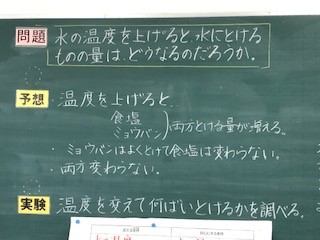 問題 水の温度を上げると、水にとける
ものの量は、どうなるのだろうか。
予想 温度を上げると、
食塩
ミョウバン 両方とける量が増える。
・ミョウバンはよくとけて食塩は変わらない。
・両方変わらない。
実験 温度を変えて何ばいとけるかを調べる。